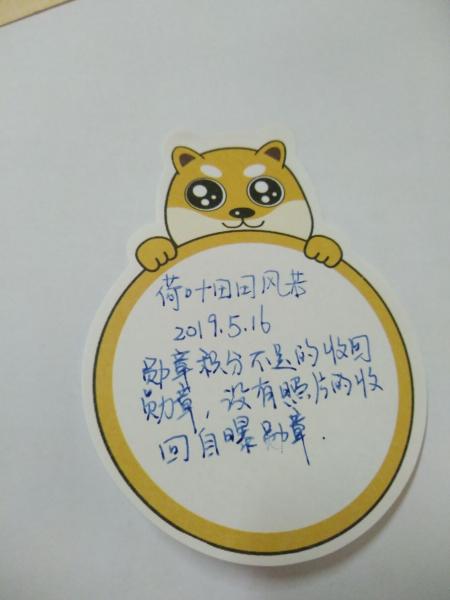 荷叶田田风恭
2019.5.16
勋章积分不足的收回
勋章，没有照片的收
回自曝勋章.